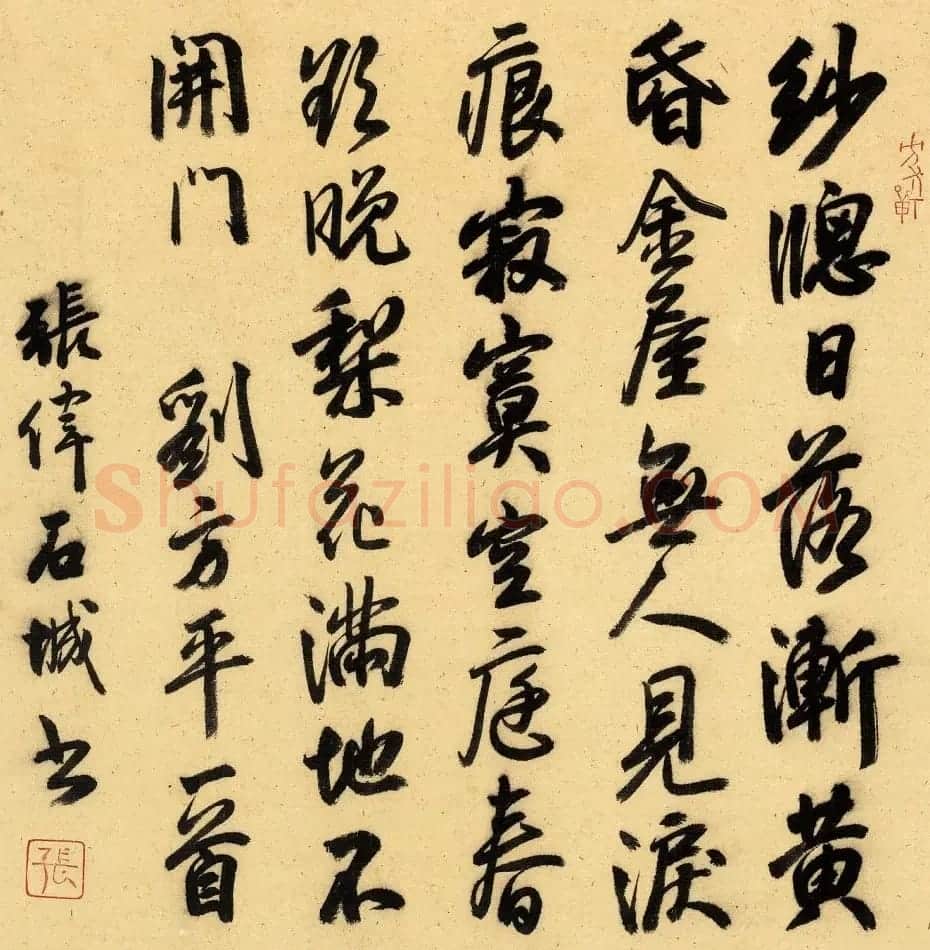 紗窻日落漸黄
昏金屋無人見淚
痕寂寞空庭春
欲晚梨花滿地不
開門 劉方平一首
張偉石城書
張
Shufaziliao.COM